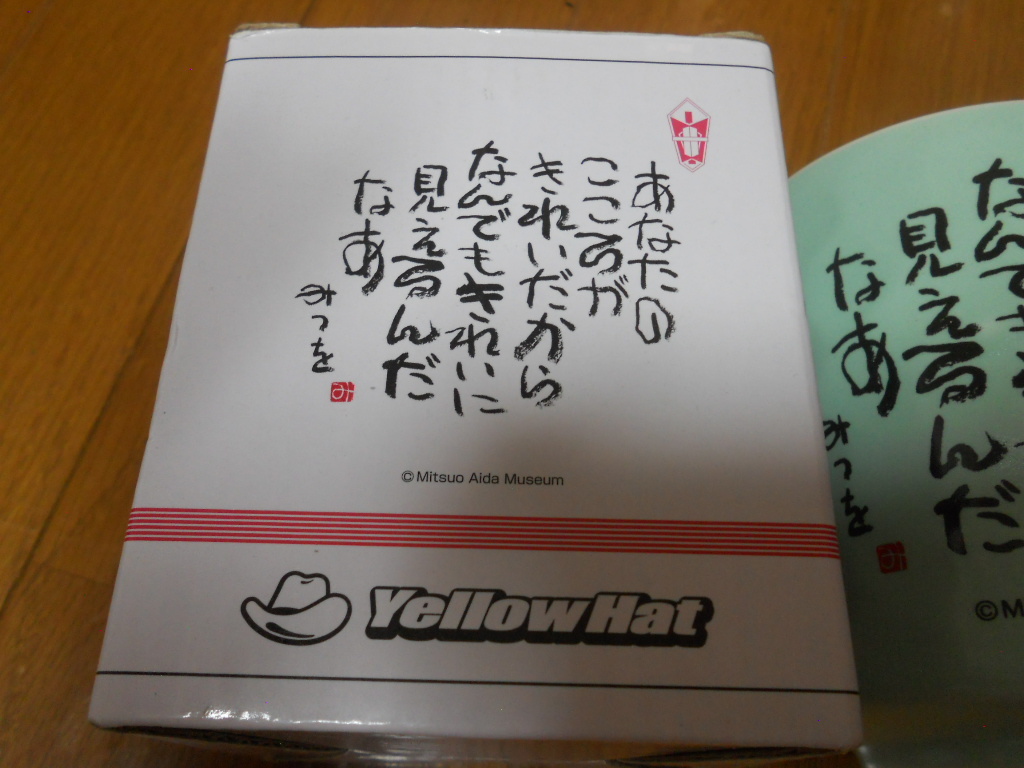 あなたの
こころが
きれいだから
なんでもきれいに
見えるんだ
なあ
みつを
み
©Mitsuo Aida Museum
YellowHat
見えるんだ
なあ
みつを
み
©M